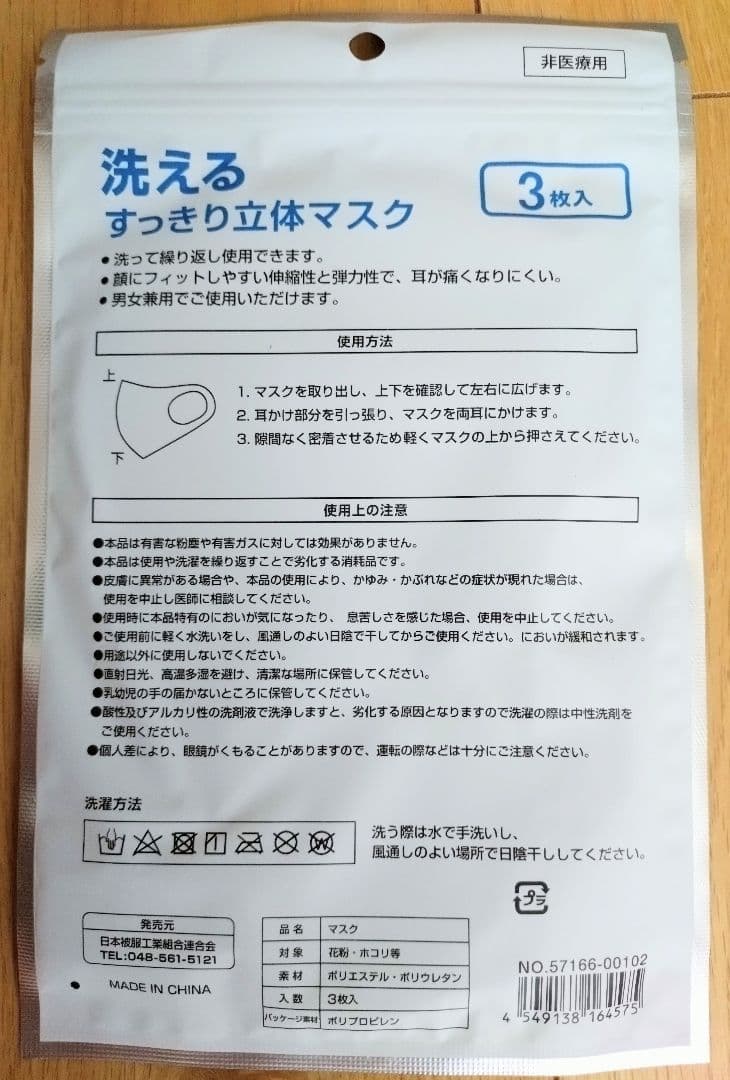 非医療用
洗える
すっきり立体マスク
3枚入
●洗って繰り返し使用できます。
●顔にフィットしやすい伸縮性と弾力性で、耳が痛くなりにくい。
●男女兼用でご使用いただけます。
使用方法
上
下
1. マスクを取り出し、上下を確認して左右に広げます。
2. 耳かけ部分を引っ張り、マスクを両耳にかけます。
3. 隙間なく密着させるため軽くマスクの上から押さえてください。
使用上の注意
●本品は有害な粉塵や有害ガスに対しては効果がありません。
●本品は使用や洗濯を繰り返すことで劣化する消耗品です。
●皮膚に異常がある場合や、本品の使用により、かゆみ・かぶれなどの症状が現れた場合は、
使用を中止し医師に相談してください。
●使用時に本品特有のにおいが気になったり、息苦しさを感じた場合、使用を中止してください。
●ご使用前に軽く水洗いをし、風通しのよい日陰で干してからご使用ください。においが緩和されます。
●用途以外に使用しないでください。
●直射日光、高温多湿を避け、清潔な場所に保管してください。
●乳幼児の手の届かないところに保管してください。
●酸性及びアルカリ性の洗剤液で洗浄しますと、劣化する原因となりますので洗濯の際は中性洗剤を
ご使用ください。
●個人差により、眼鏡がくもることがありますので、運転の際などは十分にご注意ください。
洗濯方法
W
洗う際は水で手洗いし、
風通しのよい場所で日陰干ししてください。
プラ
発売元
日本被服工業組合連合会
TEL:048-561-5121
MADE IN CHINA
品名 マスク
対象 花粉・ホコリ等
素材 ポリエステル・ポリウレタン
入数 3枚入
パッケージ素材 ポリプロピレン
NO.57166-00102
4 549138 164575